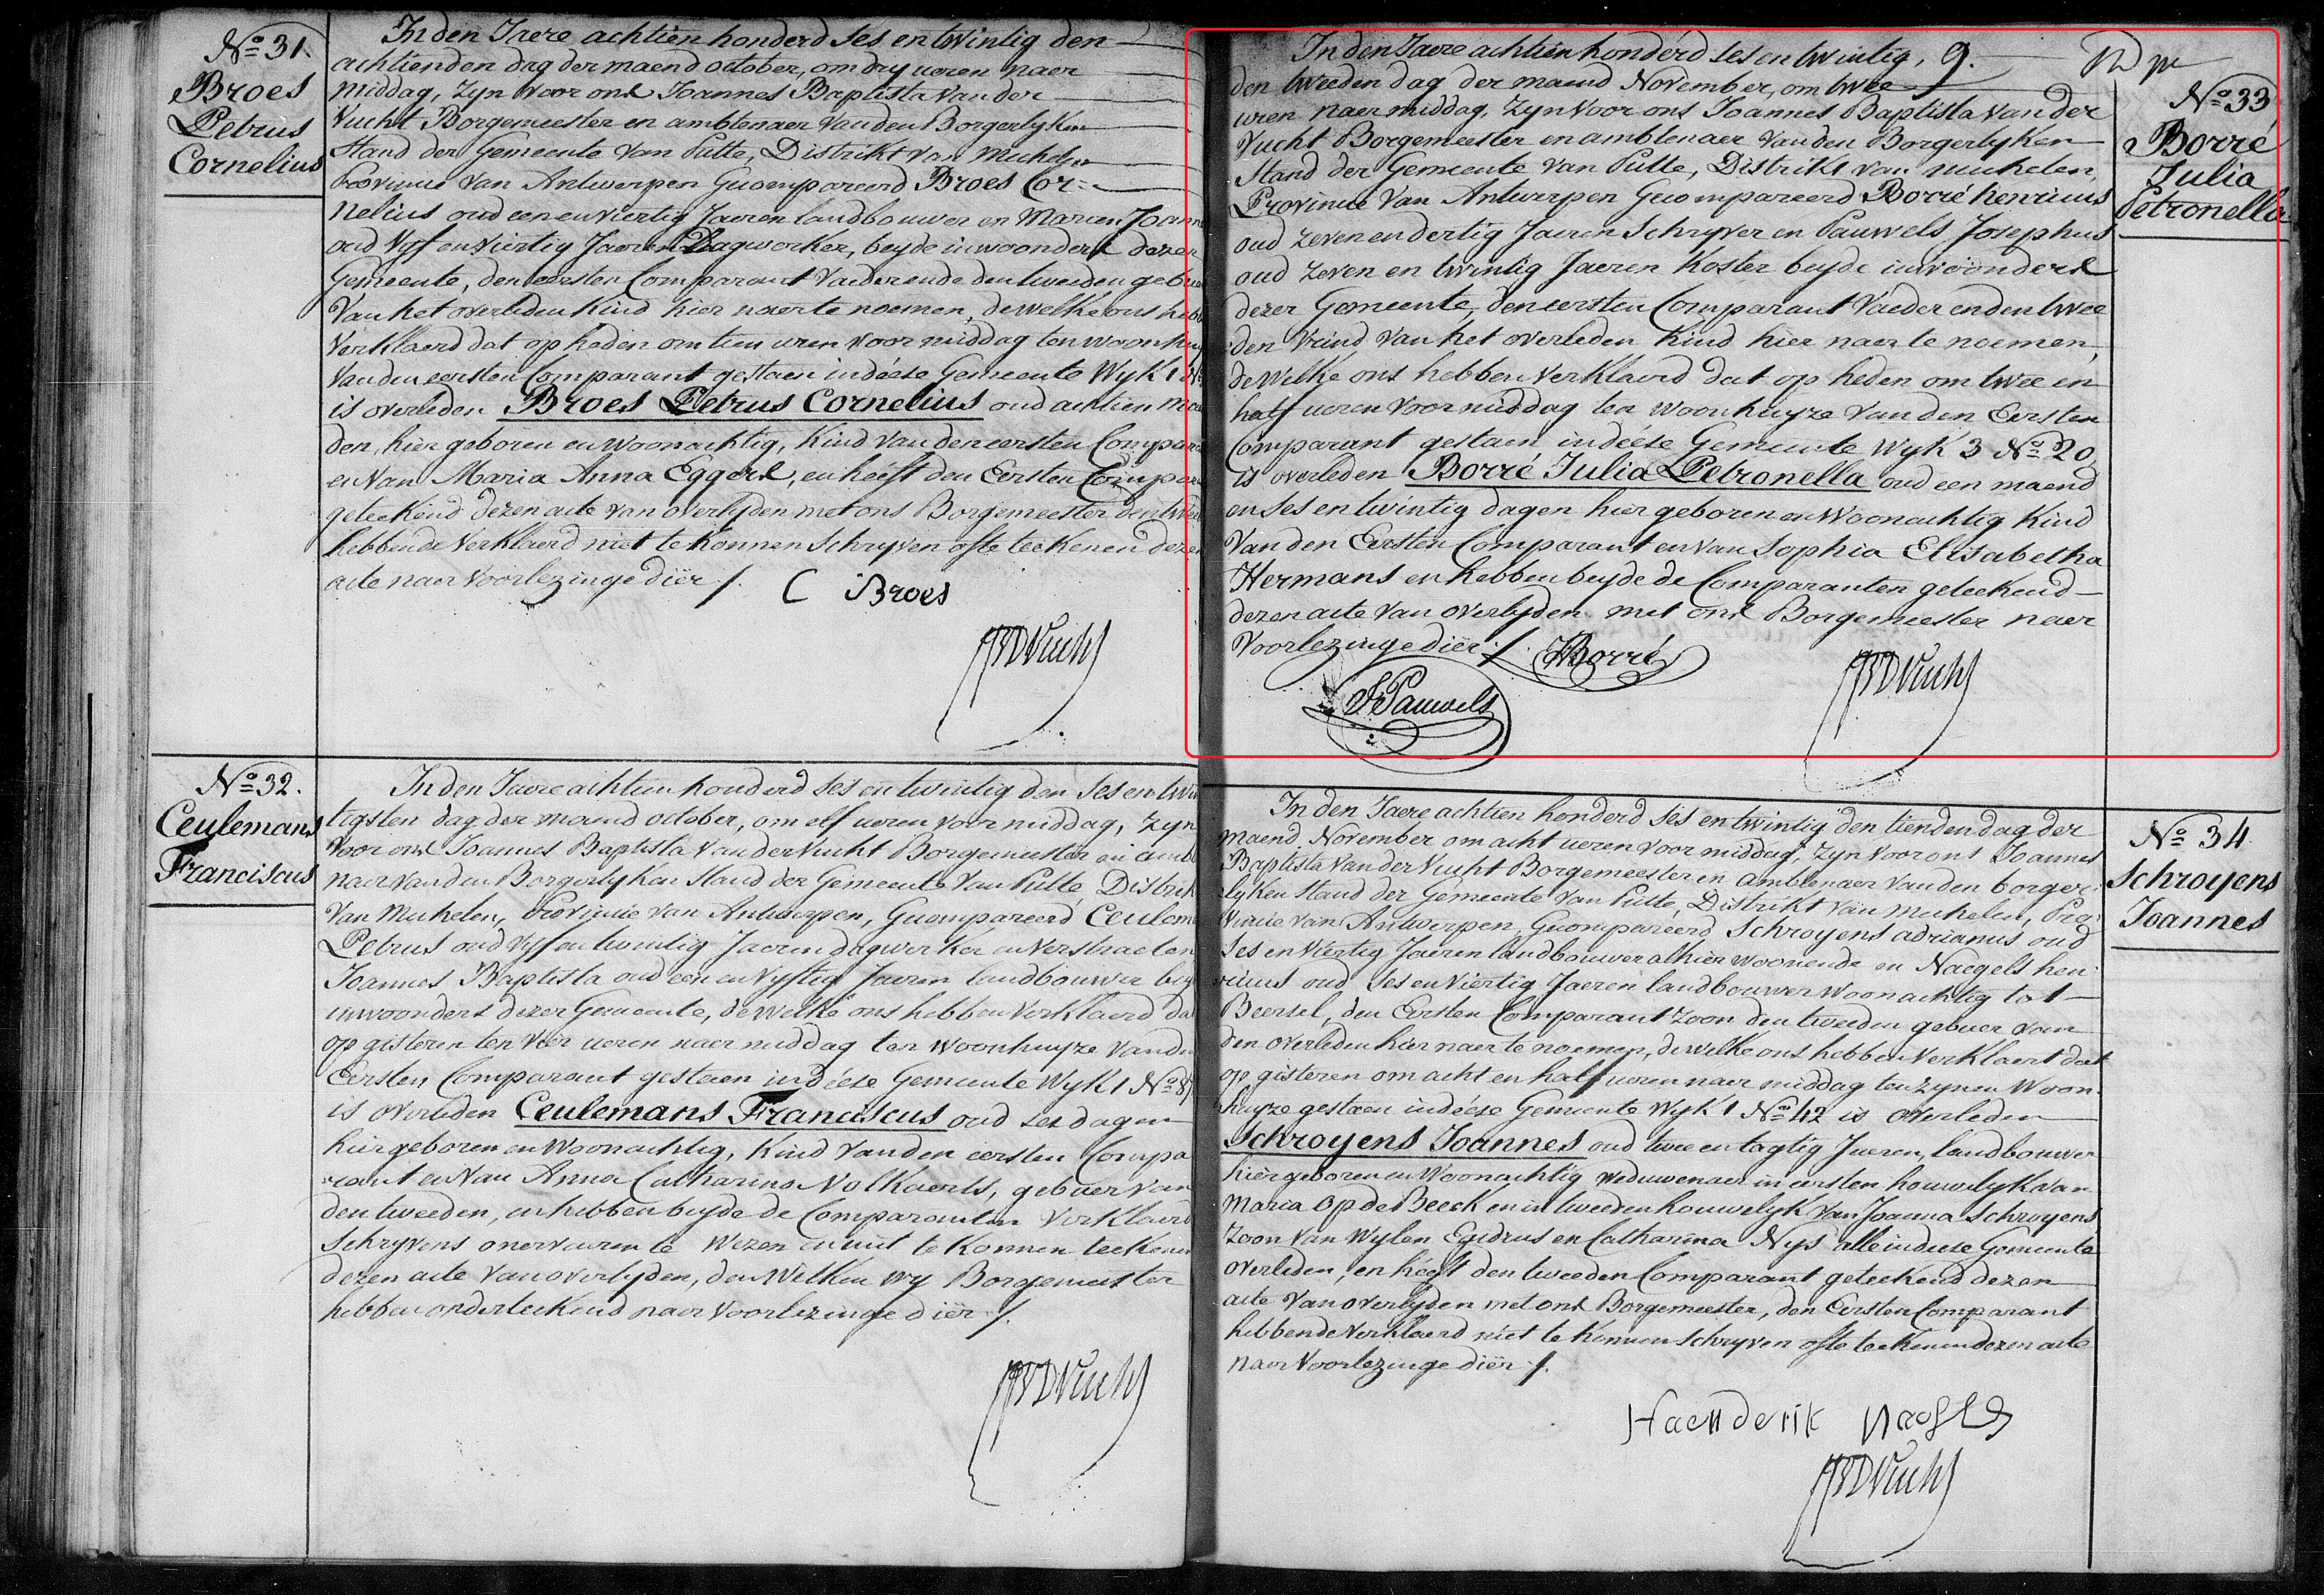 No 31.
Broes
Petrus
Cornelius
In den Jaere achtien honderd ses en twintig den
achtienden dag der maend october, om dry ueren naer
middag, zyn voor ons Joannes Baptista Van der
Vucht Borgemeester en amblenaer van den Borgerlyken
Stand der Gemeente van Putte, Distrikt van Mechelen
Provincie van Antwerpen Gecompareerd Broes Cor=
nelius oud een en viertig Jaeren landbouwer en Marien Joann
oud vyf en viertig Jaeren Dagwerker, beyde inwoonders dezer
Gemeente, den eersten Comparant Vader ende den tweeden gebue
Van het overleden Kind hier naer te noemen, dewelke ons hebb
Verklaerd dat op heden om tien uren voor middag ten woonhuy
Van den eersten Comparant gestaen in deése Gemeente Wyk 1
is overleden Broes Petrus Cornelius oud achtien mae
den, hier geboren en woonachtig, Kind van den eersten Compara
en Van Maria Anna Eggers, en heéft den Eersten Compara
geteekend dezen acte van overlyden met ons Borgemeester den twee
hebbende Verklaerd niet te konnen Schryven ofte teekenen dezen
acte naer voorlezinge diër /.
C Broes
JBVDVucht
No 32.
Ceulemans
Franciscus
In den Jaere achtien honderd ses en twintig den ses en twin
tigsten dag der maend october, om elf ueren voor middag, zyn
voor ons Joannes Baptista Van der Vucht Borgemeester en amble
naer van den Borgerlyken Stand der Gemeente van Putte, Distrik
Van Mechelen, Provincie van Antwerpen, Gecompareerd Ceulem
Petrus oud vyf en twintig Jaeren dagwerker en Verstraeten
Joannes Baptista oud een en vyftig Jaeren landbouwer bey
inwoonders dezer Gemeente, de Welke ons hebben Verklaerd da
op gisteren ten vier ueren naer middag ten woonhuyze van de
Eersten Comparant gestaen in deése Gemeente Wyk 1 No 8
is overleden Ceulemans Franciscus oud ses dagen
hier geboren en Woonachtig, Kind van den eersten Compa
rant en Van Anna Catharina Volkaerts, gebuer van
den tweeden, en hebben beyde de Comparanten Verklaerd
Schryvens onervaren te Wezen en niet te Konnen teekenen
dezen acte van overlyden, den Welken wy Borgemeester
hebben onderteekend naer Voorlezinge diër /.
JBVDVucht
9.
In den Jaere achtien honderd ses en twintig,
den tweeden dag der maend November, om twee
uren naer middag, zyn voor ons Joannes Baptista Van der
Vucht Borgemeester en amblenaer van den Borgerlyken
Stand der Gemeente van Putte, Distrikt van Mechelen,
Provincie van Antwerpen Gecompareerd Borré henricus
oud zeven en dertig Jaeren Schryver en Pauwels Josephus
oud zeven en twintig Jaeren Koster beyde inwoonders
dezer Gemeente, den eersten Comparant Vaeder en den twee
den Vrind van het overleden Kind hier naer te noemen,
de Welke ons hebben verklaerd dat op heden om twee en
half ueren voor middag ten woonhuyze van den Eersten
Comparant gestaen in deése Gemeente Wyk 3 No 20,
is overleden Borré Julia Petronella oud een maend
en ses en twintig dagen hier geboren en Woonachtig Kind
Van den Eersten Comparant en van Sophia Elisabetha
Hermans en hebben beyde de Comparanten geteekend
dezen acte van overlyden met ons Borgemeester naer
voorlezinge diër /.
HBorré
JPauwels
JBVDVucht
No 33
Borré
Julia
Petronella
In den Jaere achtien honderd ses en twintig den tienden dag der
maend November om acht ueren voor middag, zyn voor ons Joannes
Baptista Van der Vucht Borgemeester en amblenaer van den borger
lyken Stand der Gemeente van Putte, Distrikt van Mechelen, Pro
vincie van Antwerpen, Gecompareerd Schroyens adrianus oud
ses en viertig Jaeren landbouwer alhier woonende en Naegels hen
ricus oud ses en viertig Jaeren landbouwer woonachtig tot
Beersel, den Eersten Comparant Zoon den tweeden gebuer van
den overleden hier naer te noemen, de welke ons hebben Verklaert dat
op gisteren om acht en half ueren naer middag ten zynen Woon
huyze gestaen in deése Gemeente Wyk 1 No 42 is overleden
Schroyens Joannes oud twee en tagtig Jaeren, landbouwer
hier geboren en Woonachtig weduwenaer in eersten houwelyk van
Maria Op de Beeck en in tweeden houwelyk van Joanna Schroyens
Zoon van Wylen Egidius en Catharina Nys alle in deese Gemeente
overleden, en heéft den tweeden Comparant geteekend dezen
acte van overlyden met ons Borgemeester, den Eersten Comparant
hebbende Verklaerd niet te konnen schryven ofte teekenen dezen acte
naer Voorlezinge diër /.
Haenderik Naegels
JBVDVucht
No 34
Schroyens
Joannes